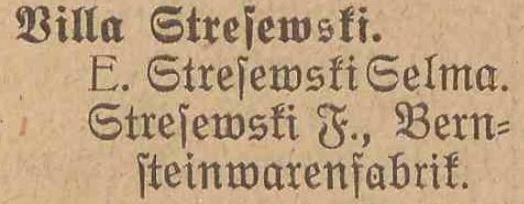 Villa Stresewski.
E. Stresewski Selma.
Stresewski F., Bern-
steinwarenfabrik.